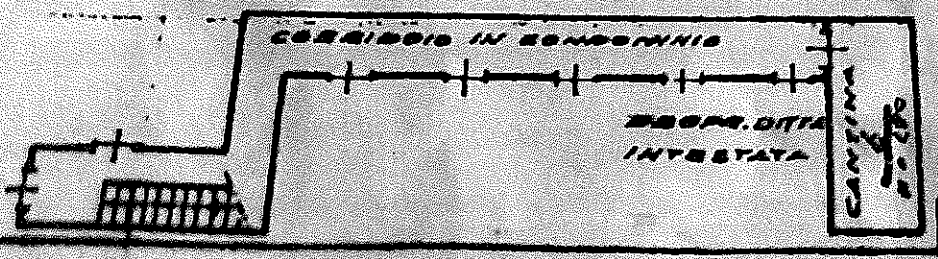 CORRIDOIO IN CONDOMINIO
PROPR. DITTA
INTESTATA
CANTINA